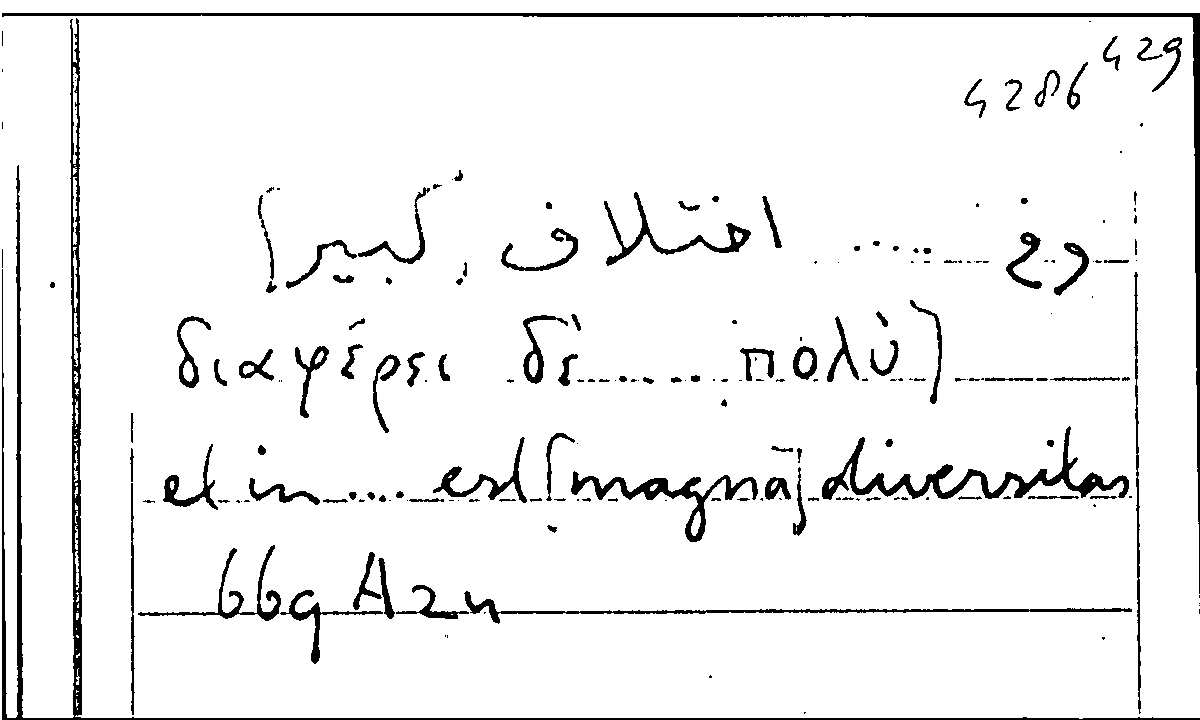 429
4286
وفي ..... اختلاف كبير]
διαφέρει δὲ ..... πολύ]
et in .... est [magna] diversitas
66q A24